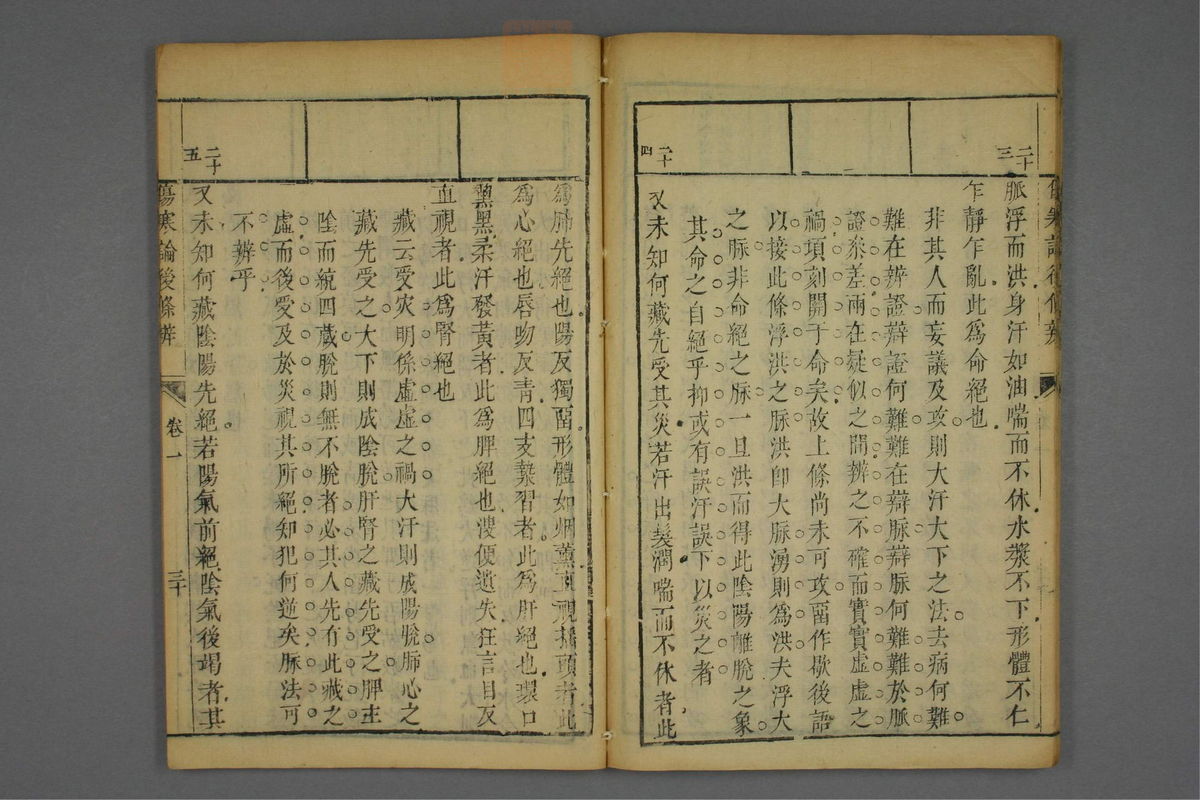 二十三
脈浮而洪身汗如油喘而不休水漿不下形體不仁
乍靜乍亂此爲命絕也
非其人而妄議及攻則大汗大下之法去病何難
難在辨證辯證何難難在辯脈辯脈何難難於脈
證叅差兩在疑似之間辨之不確而實實虛虛之
禍項刻關于命矣故上條尚未可攻畱作歇後語
以接此條浮洪之脈洪卽大脈湧則爲洪夫浮大
之脈非命絕之脈一旦洪而得此陰陽離脫之象
其命之自絕乎抑或有誤汗誤下以災之者
二十四
又未知何藏先受其災若汗出髮潤喘而不休者此
爲肺先絕也陽反獨畱形體如烟薰直視搖頭者此
爲心絕也唇吻反青四支漐習者此爲肝絕也環口
黧黑柔汗發黃者此爲脾絕也溲便遺失狂言目反
直視者此爲腎絕也
藏云受災明係虛虛之禍大汗則成陽脫肺心之
藏先受之大下則成陰脫肝腎之藏先受之脾主
陰而統四藏脫則無不脫者必其人先有此藏之
虛而後受及於災視其所絕知犯何逆矣脈法可
不辨乎
二十五
又未知何藏陰陽先絕若陽氣前絕陰氣後竭者其
傷寒論後條辨
卷一
三十